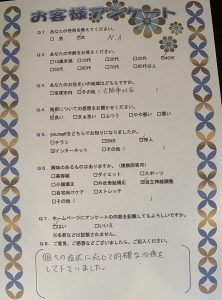 お客様アンケート
Q1. あなたの性別を教えてください。
□男 □女 N.A
Q2. あなたの年齢をお答えください。
□10歳未満 □10代 □20代 □30代 □40代
□50代 □60代 □70代 □80代以上
Q3. あなたのお住まいの地域はどちらですか。
□宝塚市内 □その他(大阪市
Q4. 施術についての感想をお聞かせください。
□良い □まあ良い □ふつう □やや悪い □悪い
□その他(
Q5. yourselfをどちらでお知りになりましたか。
□チラシ □SNS □知人
□インターネット □その他(
Q6. 興味のあるものはありますか。(複数回答可)
□美容鍼 □ダイエット □スポーツ
□小顔矯正 □外反母趾矯正 □自律神経調整
□自宅向けケア □ストレッチ
□その他(
Q7. ホームページにアンケートの内容を記載してもよろしいですか。
□はい □いいえ
※名前などは記載されません。
Q8. ご意見、ご感想などございましたら、ご記入ください。
個々の症状に応じて的確な治療を
して下さいました。